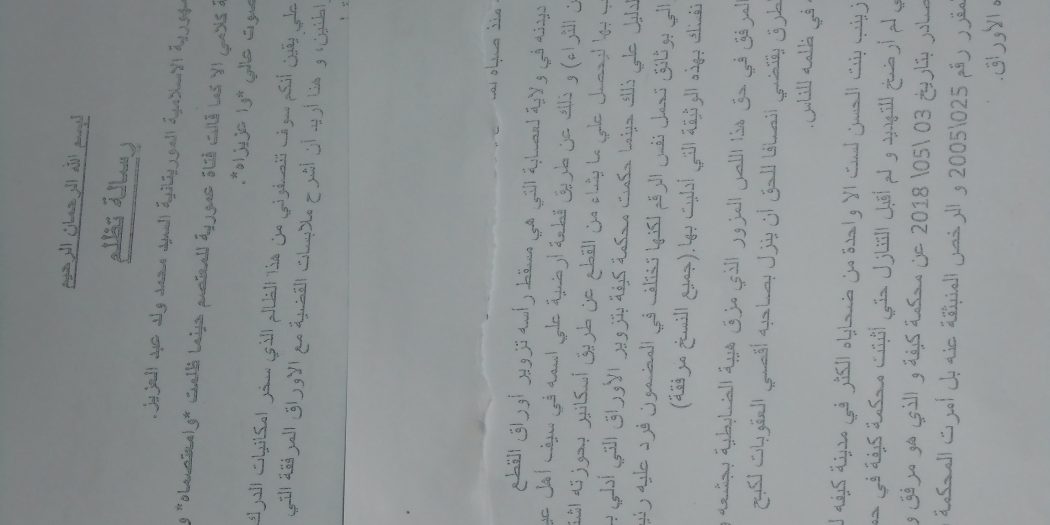 بسم الله الرحمان الرحيم
رسالة تظلم
الإسلامية الموريتانية السيد محمد ولد عبد العزيز.
كلامي الا كما قالت فتاة عمورية للمعتصم حينما ظلمت *وامعتصماه* و
صوت عالي *وا عزيزاه*.
علي يقين أنكم سوف تنصفوني من هذا الظالم الذي سخر امكانيات الدرك
و هنا أريد أن أشرح ملابسات القضية مع الاوراق المرفقة التي
منذ صباه
ديدنه في ولاية لعصابة التي هي مسقط رأسه تزوير أوراق القطع
الثراء) و ذلك عن طريق قطعة أرضية علي اسمه في سيف أهل
بها ليحصل علي ما يشاء من القطع عن طريق أسكانير بحوزته
الدليل علي ذلك حينما حكمت محكمة كيفة بتزوير الأوراق التي أدلي
الي بوثائق تحمل نفس الرقم لكنها تختلف في المضمون فرد عليه
نفسك بهذه الوثيقة التي أدليت بها.(جميع النسخ مرفقة)
المرفق في حق هذا اللص المزور الذي مزق هيبة الضابطية بجشعه و
طرق يقتضي انصافا للحق أن ينزل بصاحبه أقصي العقوبات لكبح
في ظلمه للناس.
زينب بنت الحسن لست الا واحدة من ضحاياه الكثر في مدينة كيفه
لم أرضخ للتهديد و لم أقبل التنازل حتي أثبتت محكمة كيفة في
صادر بتاريخ 03 \05\ 2018 عن محكمة كيفة و الذي هو مرفق و
المقرر رقم 025\2005 و الرخص المنبثقة عنه بل أمرت المحكمة
الأوراق.